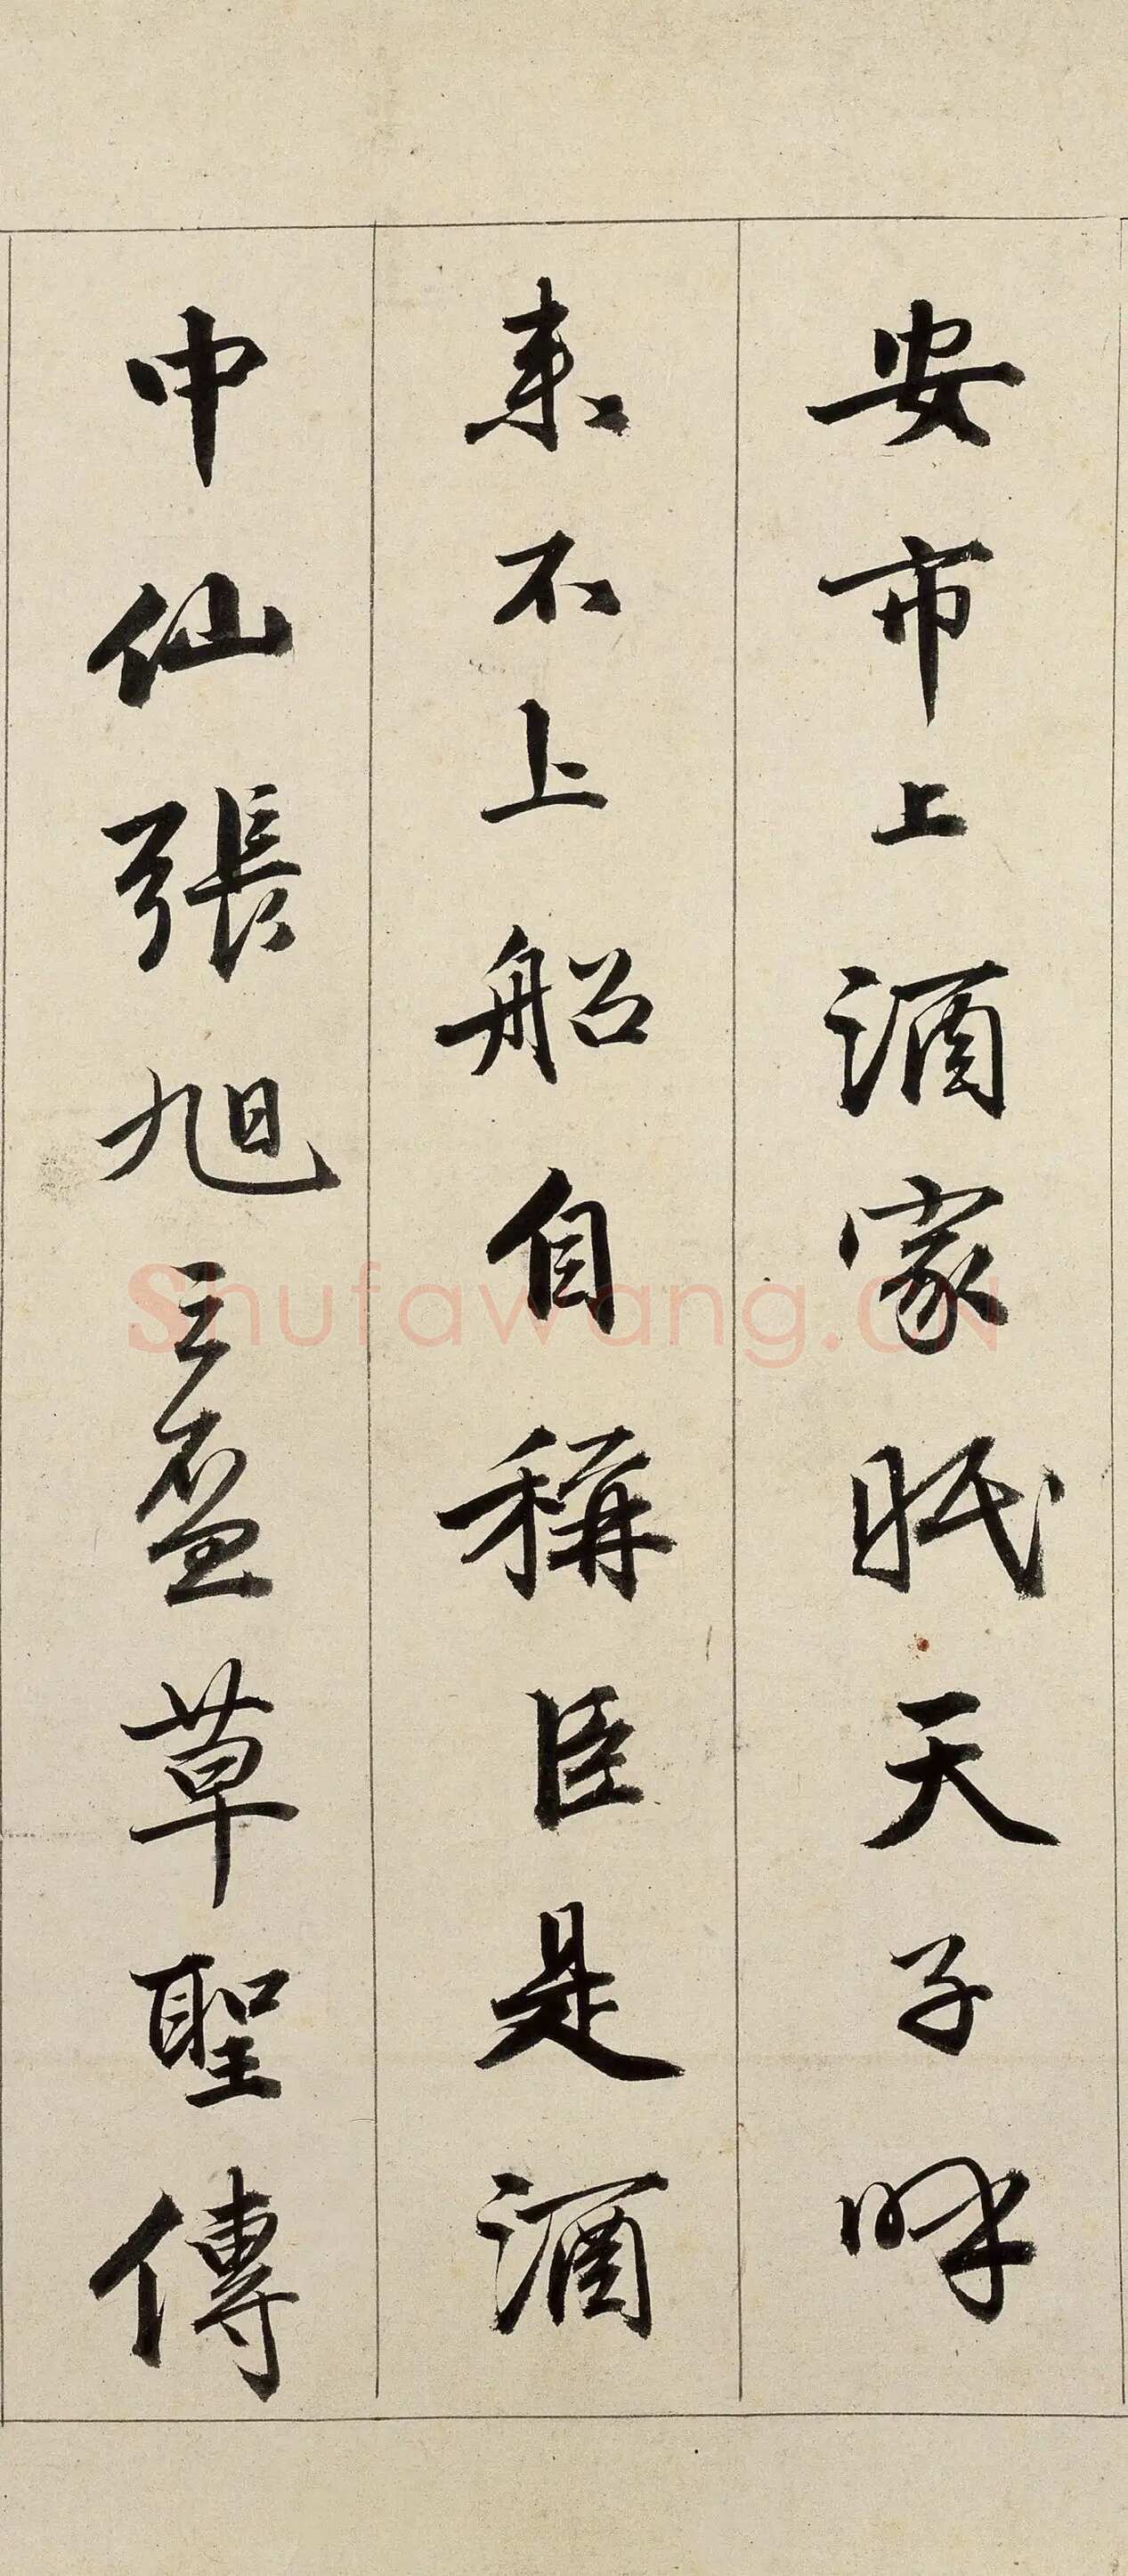 安市上酒家眠天子呼
来不上船自稱臣是酒
中仙張旭三盃草聖傳
Shufawang.CN